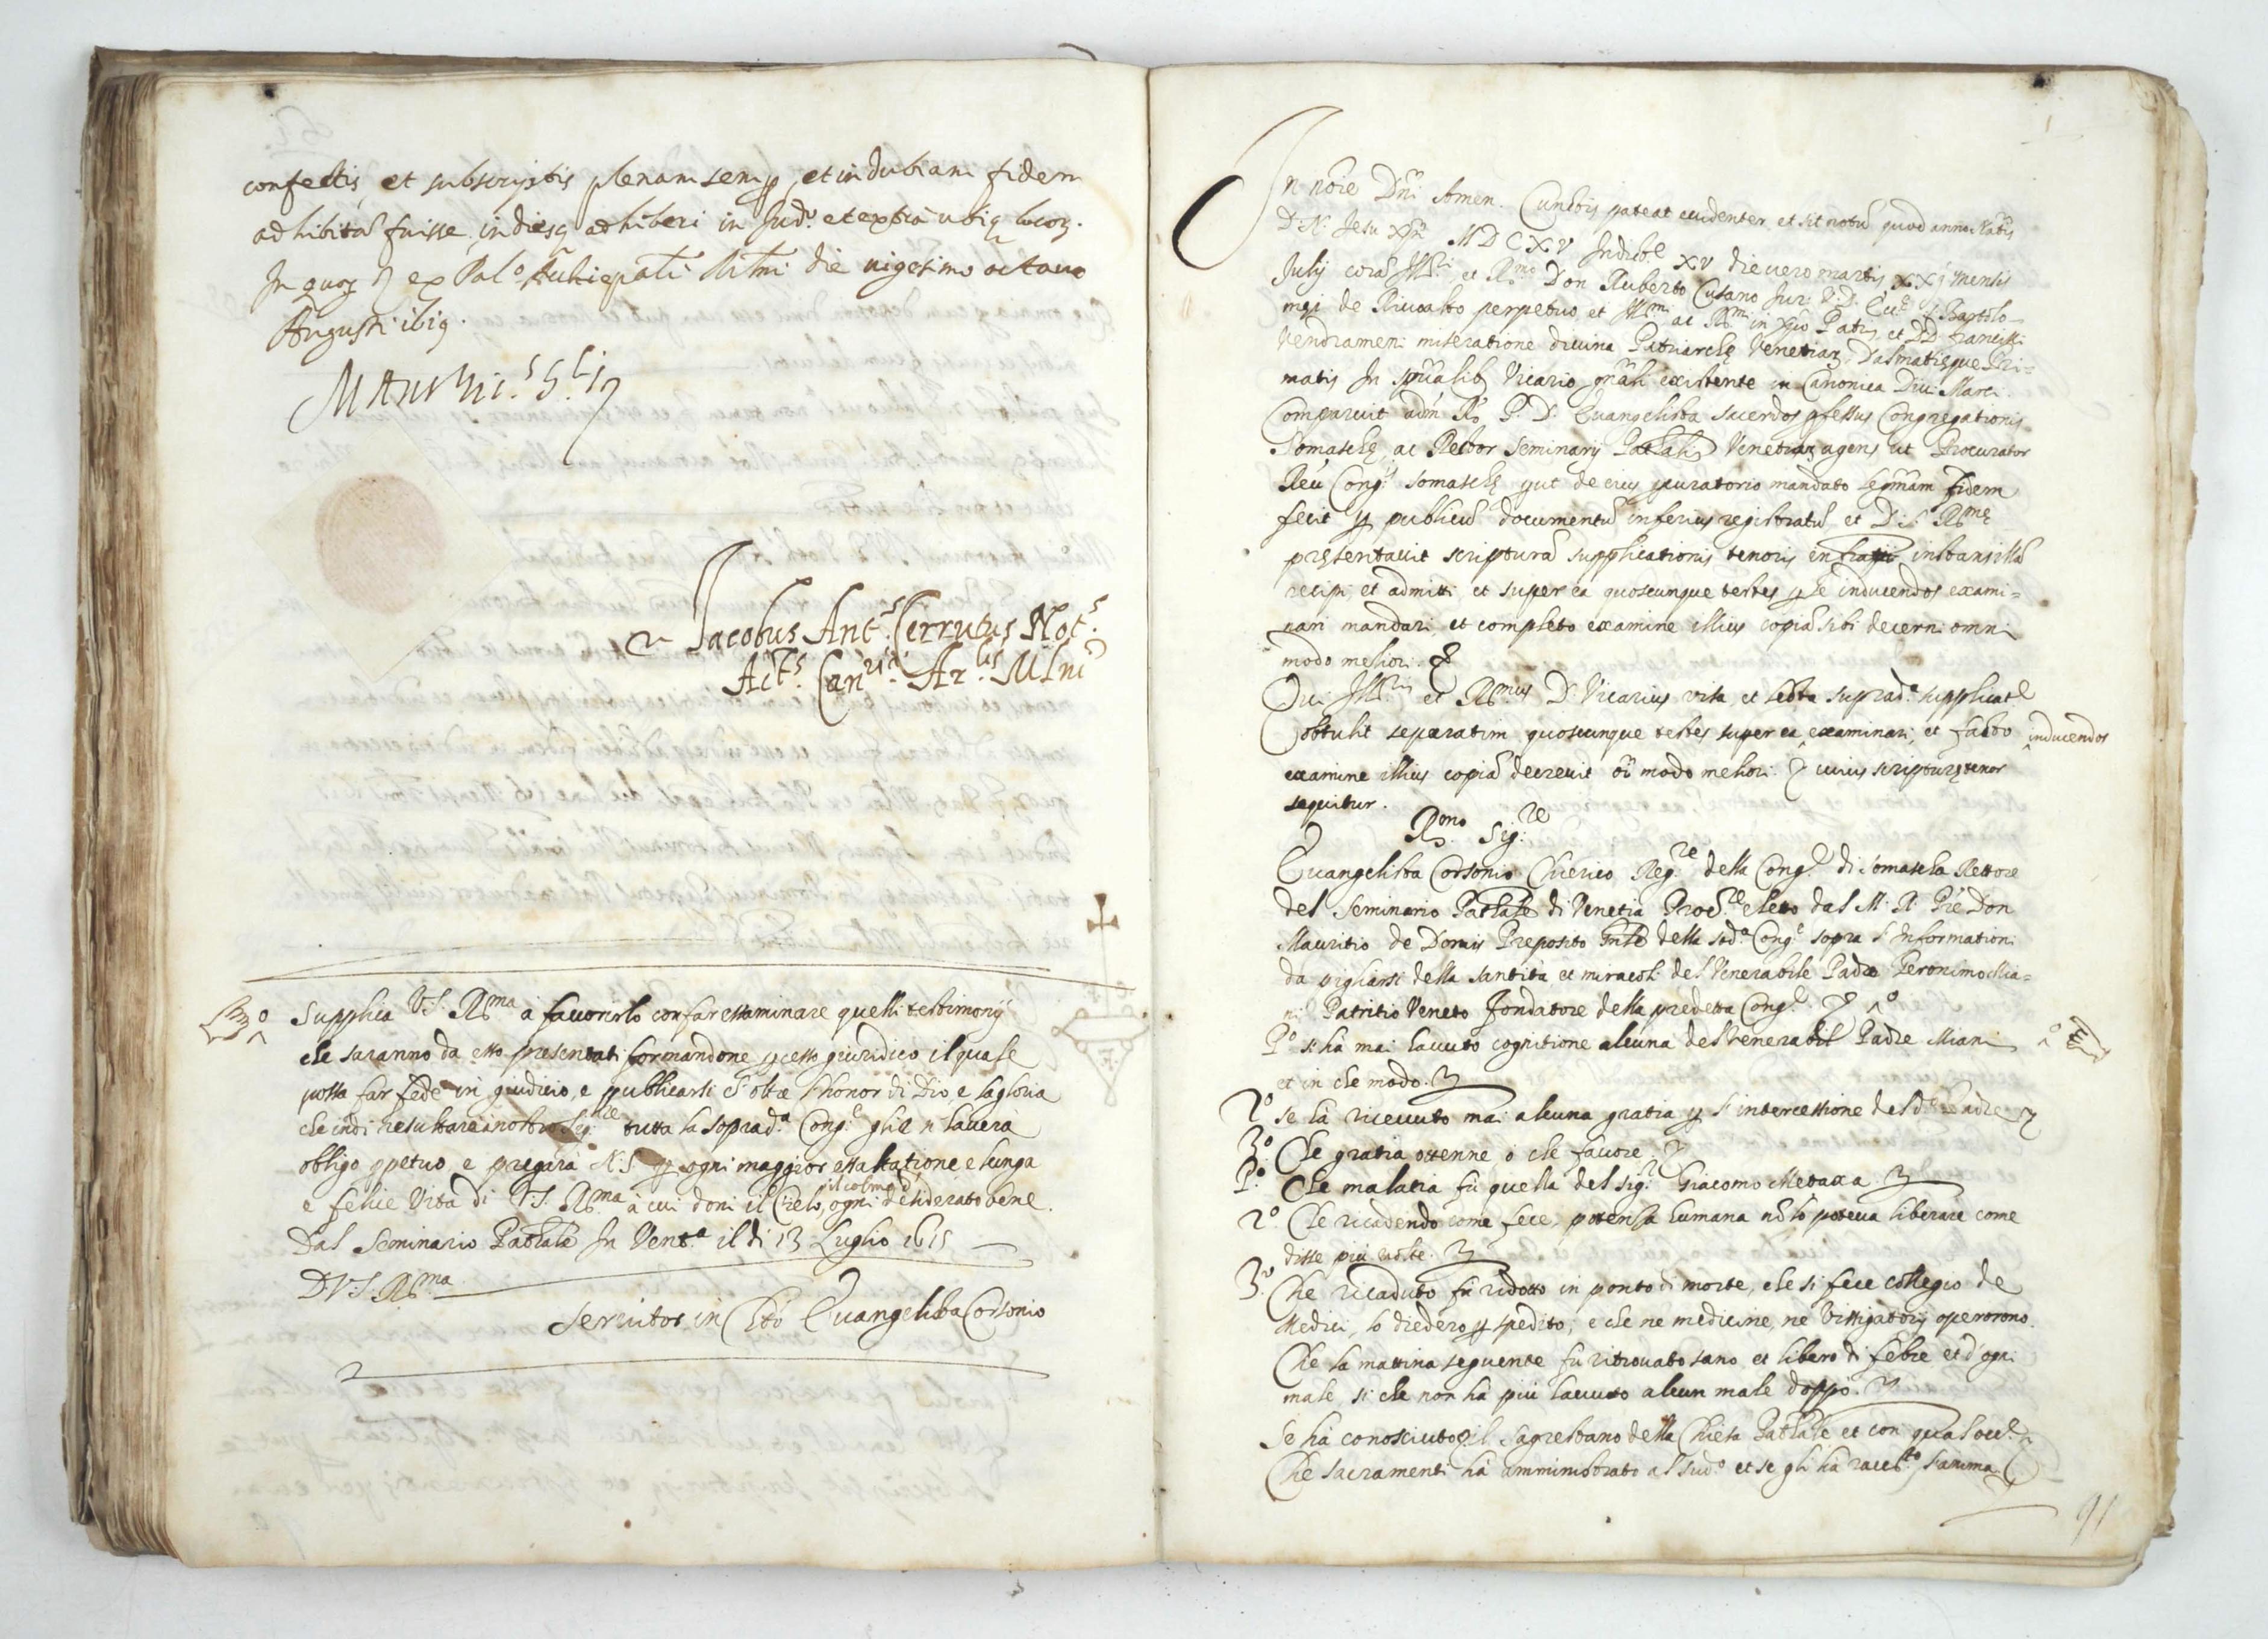 confectis, et subscriptis plenam semp, et indubiam fidem
adhibità fuisse, indiesq adhiberi in Jud.° et extra ubiq locoz.
In quoz ex Pal.° Archiepali Mlni die uigesimo octauo
Augusti ibiq.
Jacobus Ant.s Cerrutus Not.s
Act.s Can.riæ Ar.lis Mlni
Supplica V.S. R.ma à fauorirlo con far essaminare quelli testimonij
che saranno da esso presentati formandone pcesso giuridico il quale
possa far fede in giudicio, e publicarsi ch'oltre l'honor di Dio, e la gloria
che indi resultarà à nostro Sig.re tutta la soprad.a Cong.e gliè n'hauerà
obligo ppetuo, e pregarà N.S. p ogni maggior essaltatione e lunga
e felice Vita di V.S. R.ma à cui doni il Cielo, il colmo d' ogni desiderato bene.
Dal Seminario Patriale In Vent.a il di 13 Luglio 1615
D V.S. R.ma
Seruitor in Chto Euangelista Corsonio
In noie Dni Amen. Cunctis pateat euidenter, et sit notu quod anno Natis
D.N. Jesu Xpi MDCXV Indict.e XV die uero martis XXj mensis
Julij corà Ill.ri et R.mo Don Ruberto Cusano Jur. V.D. Eccl. S. Bartolo-
mei de Riuoalto perpetuo et Ill.mi ac R.mi in Xpo Patris et D.D. Francisci
Vendrameni miseratione diuina Patriarchę Venetiaz, Dalmatięque Pri-
matis In spualib Vicario gnali existente in Canonica Diui Marci.
Comparuit adm R. P. D. Euangelista sacerdos pfessus Congregationis
Somaschę, ac Rector Seminarij Patriatis Venetiaz agens ut Procurator
Reu Cong.is Somaschę put de eius pcuratorio mandato legmam fidem
fecit p publicu documentu inferius registratu et D.S. R.mę
pręsentauit scripturà supplicationis tenoris infratti instans illà
recipi, et admitti et super ea quoscunque testes p se inducendos exami-
nari mandari, et completo examine illius copià sibi decerni omni
modo meliori.
Qui Ill.ris et R.mus D. Vicarius uisa, et lecta suprad.a supplicat.e
obtulit separatim quoscunque testes super ea inducendos examinari, et facto
examine illius copià decreuit oi modo meliori. cuius scripturę tenor
sequitur.
R.mo Sig.re
Euangelista Corsonio Chierico Reg.re della Cong.e di Somascha Rettore
del Seminario Patriale di Venetia Proc.re eletto dal M. R. Pre Don
Mauritio de Domis Preposito Gnle della sud.a Cong.e sopra l'Informationi
da pigliarsi della santità et miracoli del Venerabile Padre Geronimo Mia-
ni Patritio Veneto Fondatore della predetta Cong.e
P.° si hà mai hauuto cognitione alcuna del Venerabil Padre Miani
et in che modo.
2.° se hà riceuuto mai alcuna gratia p l'intercessione del d.° Padre
3.° Che gratia ottenne ò che fauore
P.° Che malatia fù quella del sig.r Giacomo Metaxa
2.° Che ricadendo come fece, potenza humana nō lo poteua liberare come
disse più uolte.
3.° Che ricaduto fù ridotto in ponto di morte, che si fece collegio de
Medici, lo diedero p spedito; e che ne medicine, ne Vissigatorij operorono.
Che la mattina seguente fù ritrouato sano, et libero di febre et d'ogni
male, si che non hà più hauuto alcun male doppo.
Se hà conosciuto il sagrestano della Chiesa Patriale et con qual occ.e
Che sacramenti hà amministrato al sud.° et se gli hà racc.to l'anima
91